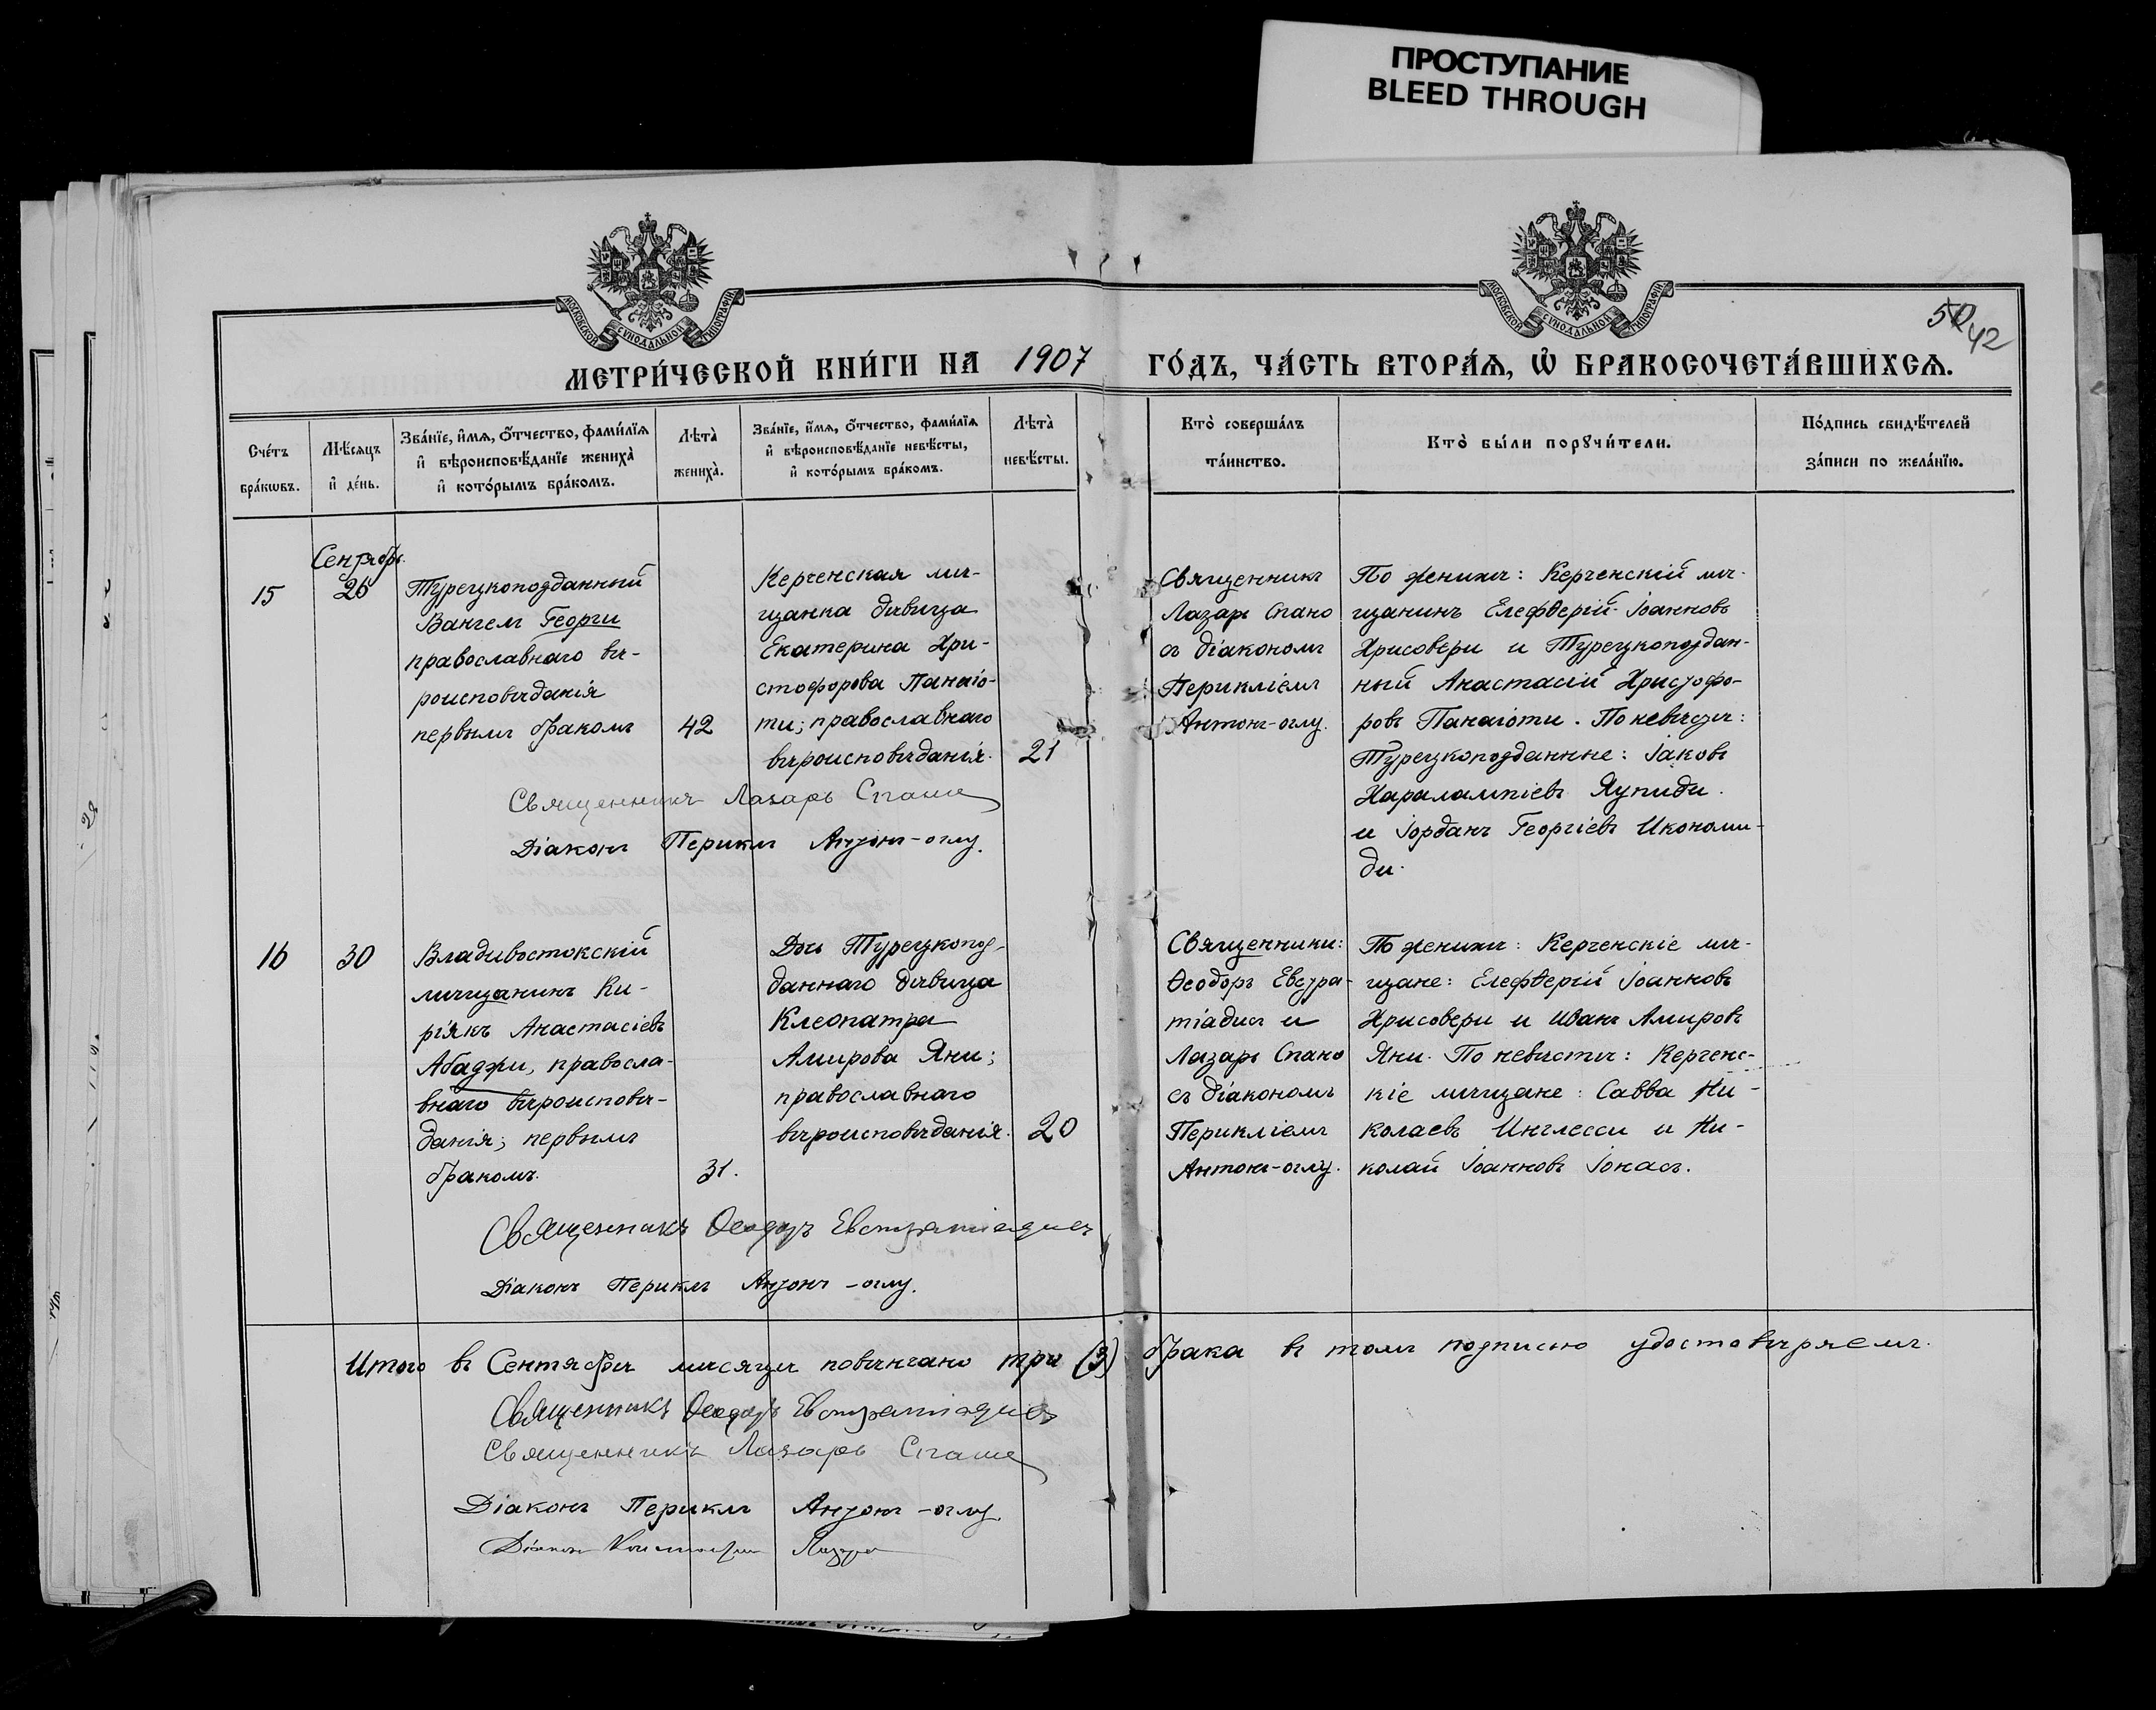 ПРОСТУПАНИЕ
BLEED THROUGH
МОСКОВСКОЙ СѴНОДАЛЬНОЙ ТИПОГРАФІИ
МОСКОВСКОЙ СѴНОДАЛЬНОЙ ТИПОГРАФІИ
50 42
МЕТРИ́ЧЕСКОЙ КНИ́ГИ НА 1907 ГО́ДЪ, ЧА́СТЬ ВТОРА́Ѧ, Ѽ БРАКОСОЧЕТА́ВШИХСѦ.
Сче́тъ
бра́кѡвъ.
Мѣ́сяцъ
и҆ де́нь.
Зва́нїе, и҆́мѧ, ѻ҆́тчество, фами́лїѧ
и҆ вѣроисповѣ́данїе жениха̀
и҆ кото́рымъ бра́комъ.
Лѣта̀
жениха̀.
Зва́нїе, и҆́мѧ, ѻ҆́тчество, фами́лїѧ
и҆ вѣроисповѣ́данїе невѣ́сты,
и҆ кото́рымъ бра́комъ.
Лѣта̀
невѣ́сты.
Кто̀ соверша́лъ
та́инство.
Кто̀ бы́ли порꙋчи́тели.
По́дпись свидѣ́телей
за́писи по жела́нїю.
15
Сентябрь
26
Турецкоподданный
Вангелъ Георги
православнаго вѣ-
роисповѣданія
первымъ бракомъ
42
Керченская мѣ-
щанка дѣвица
Екатерина Хри-
стофорова Панаіо-
ти; православнаго
вѣроисповѣданія.
21
Священникъ
Лазарь Спано
съ діакономъ
Перикліемъ
Антонъ-оглу.
По женихѣ: Керченскій мѣ-
щанинъ Елефѳерій Іоанновъ
Хрисовери и Турецкоподдан-
ный Анастасій Христофо-
ровъ Панаіоти. По невѣстѣ:
Турецкоподданные: Іаковъ
Харалампіевъ Яупиди
и Іорданъ Георгіевъ Икономи-
ди.
Священникъ Лазарь Спано
Діаконъ Периклъ Антонъ-оглу.
16
30
Владивостокскій
мѣщанинъ Ки-
ріякъ Анастасіевъ
Абаджи, правосла-
внаго вѣроисповѣ-
данія; первымъ
бракомъ.
31.
Дочь Турецкопод-
даннаго дѣвица
Клеопатра
Амирова Яни;
православнаго
вѣроисповѣданія.
20
Священники:
Ѳеодоръ Евстра-
тіадисъ и
Лазарь Спано
съ діакономъ
Перикліемъ
Антонъ-оглу.
По женихѣ: Керченскіе мѣ-
щане: Елефѳерій Іоанновъ
Хрисовери и Иванъ Амировъ
Яни. По невѣстѣ: Керченс-
кіе мѣщане: Савва Ни-
колаевъ Инглесси и Ни-
колай Іоанновъ Іонасъ.
Священникъ Ѳеодоръ Евстратіадисъ
Діаконъ Периклъ Антонъ-оглу.
Итого въ Сентябрѣ мѣсяцѣ повѣнчано три (3) брака въ томъ подписью удостовѣряемъ.
Священникъ Ѳеодоръ Евстратіадисъ
Священникъ Лазарь Спано
Діаконъ Периклъ Антонъ-оглу.
Діаконъ